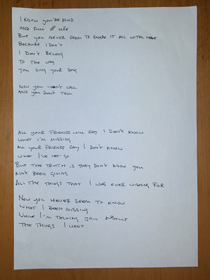 I know you're kind
and full of life
But you never seem to share it all with me
Because I don't
I don't belong
to the way
you sing your song
Now you won't call
and you don't talk
All your friends will say I don't know
what I'm missing
All your friends say I don't know
what I've got
But the truth is they don't know you
ain't been giving
All the things that I was ever wishing for
Now you never seem to know
what I been missing
What I'm talking about
The things I want